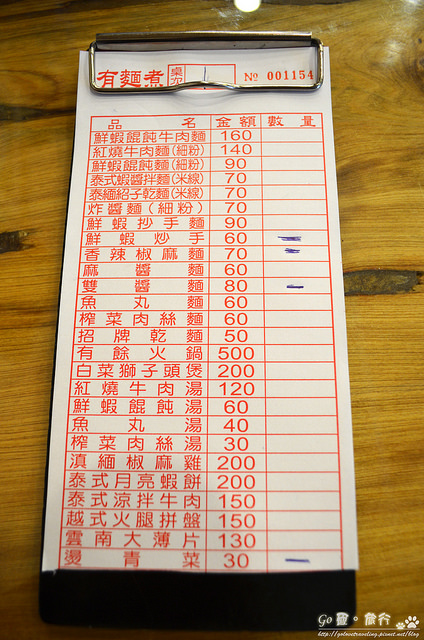 有麵煮 桌次 1 № 001154
品名 金額 數量
鮮蝦餛飩牛肉麵 160
紅燒牛肉麵(細粉) 140
鮮蝦餛飩麵(細粉) 90
泰式蝦醬拌麵(米線) 70
泰緬紹子乾麵(米線) 70
炸醬麵(細粉) 70
鮮蝦抄手麵 90
鮮蝦炒手 60 二
香辣椒麻麵 70 一
麻醬麵 60
雙醬麵 80 一
魚丸麵 60
榨菜肉絲麵 60
招牌乾麵 50
有餘火鍋 500
白菜獅子頭煲 200
紅燒牛肉湯 120
鮮蝦餛飩湯 60
魚丸湯 40
榨菜肉絲湯 30
滇緬椒麻雞 200
泰式月亮蝦餅 200
泰式涼拌牛肉 150
越式火腿拼盤 150
雲南大薄片 130
燙青菜 30 一